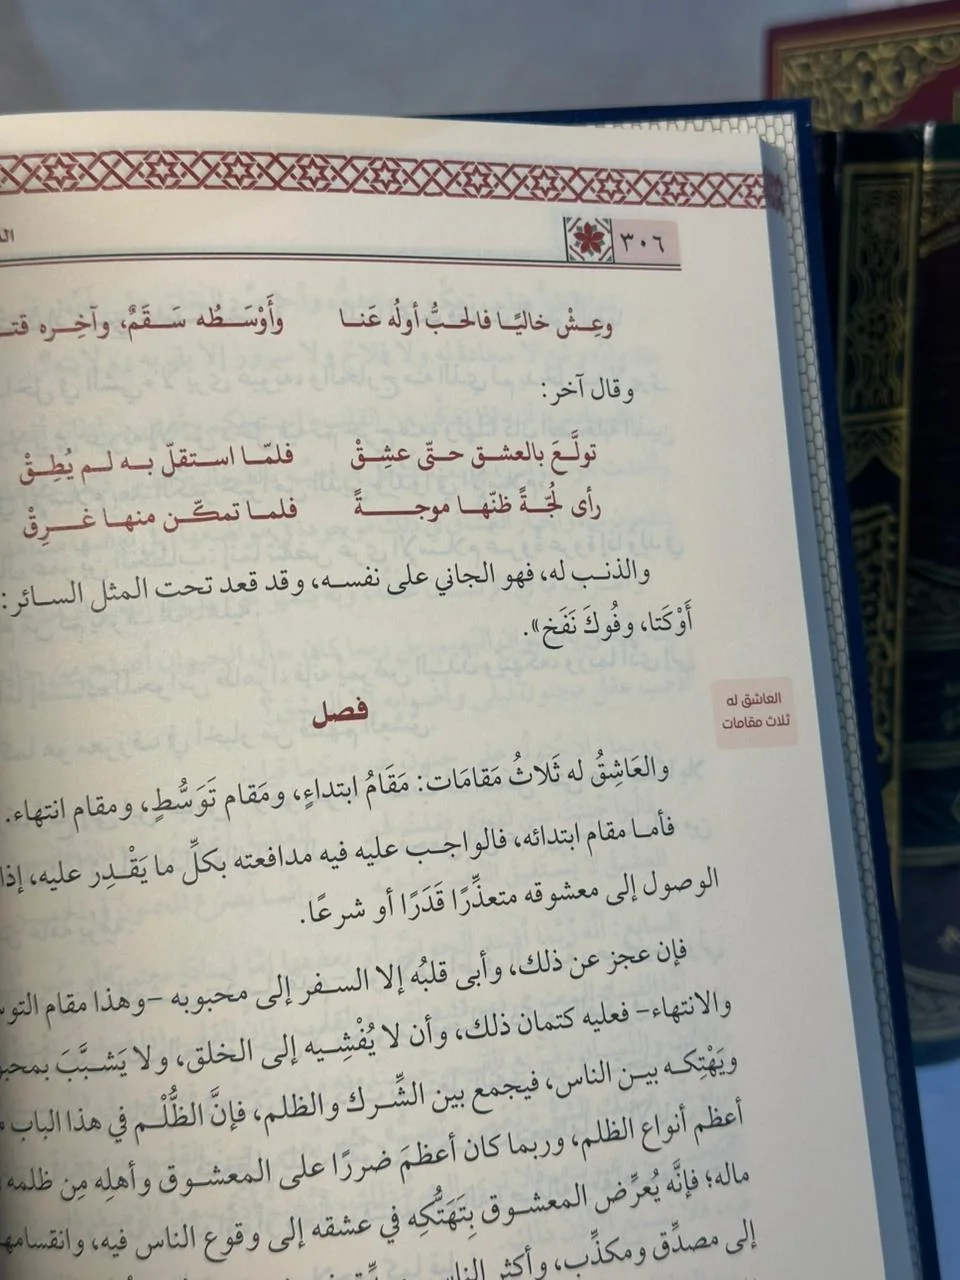 ٣٠٦
وعِـشْ خاليًـا فالحـبُّ أولُه عَنـا وأَوْسَـطُه سَـقَمٌ، وآخِـره
وقال آخر:
تولَّـعَ بالعشـق حتّـى عشِـقْ فلمّـا اسـتقلّ بـه لـم يُطِـقْ
رأى لُجّـةً ظنّهـا موجــةً فلمـا تمكّـن منهـا غـرِقْ
والذنـب له، فهو الجاني على نفسـه، وقد قعد تحت المثل السـائر:
أَوْكَتا، وفُوكَ نَفَخ».
فصل
العاشق له
ثلاث مقامات
والعَاشِقُ له ثَلاثُ مَقامَات: مَقَامُ ابتداءٍ، ومَقام تَوَسُّطٍ، ومقام انتهاء.
فأمـا مقام ابتدائه، فالواجـب عليه فيه مدافعته بكلِّ ما يَقْـدِر عليه، إذا
الوصول إلى معشوقه متعذِّرًا قَدَرًا أو شرعًا.
فإن عجز عن ذلك، وأبى قلبُه إلا السـفر إلى محبوبه -وهذا مقام
والانتهاء- فعليه كتمان ذلك، وأن لا يُفْشِـيه إلى الخلق، ولا يَشـبَّبَ
ويَهْتِكـه بيـن الناس، فيجمع بين الشِّـرك والظلم، فإنَّ الظُّلْـم في هذا الباب
أعظم أنواع الظلم، وربما كان أعظمَ ضررًا على المعشـوق وأهلِه مِن ظلمه
ماله؛ فإنَّه يُعرِّض المعشـوق بِتَهَتُّكِه في عشقه إلى وقوع الناس فيه،
إلى مصدِّق ومكذِّب، وأكثر